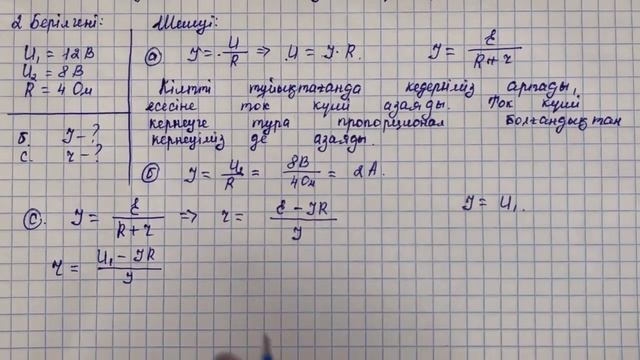 2 Берілгені:
U₁ = 12 В
U₂ = 8 В
R = 4 Ом
б. I - ?
с. r - ?
Шешуі:
а) I = U/R => U = I · R. I = ε/(R + r)
Кілтті тұйықтағанда кедергіміз артады,
есесіне ток күші азаяды. Ток күші
кернеуге тура пропорционал болғандықтан
кернеуіміз де азаяды.
б) I = U₂/R = 8В/4Ом = 2 А.
с). I = ε/(R + r) => r = (ε - IR)/I I = U₁.
r = (U₁ - IR)/I